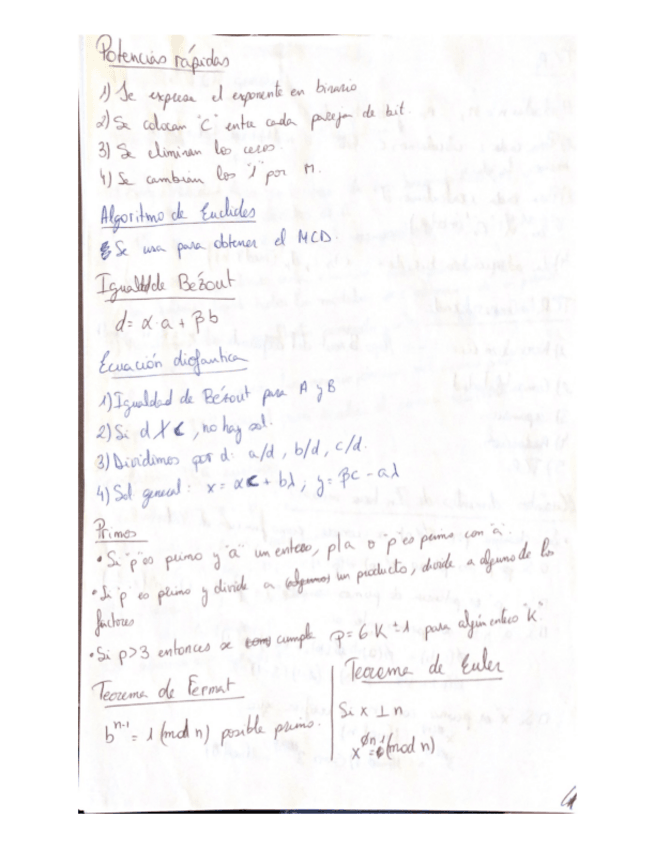 Potencias rápidas
1) Se expresa el exponente en binario
2) Se colocan "C" entre cada pareja de bit.
3) Se eliminan los ceros.
4) Se cambian los "1" por M.
Algoritmo de Euclides
Se usa para obtener el MCD.
Igualdad de Bézout
d = α·a + βb
Ecuación diofantica
1) Igualdad de Bézout para A y B
2) Si d ∤ C, no hay sol.
3) Dividimos por d: a/d, b/d, c/d.
4) Sol general: x = αC + bλ ; y = βc - aλ
Primos
• Si "p" es primo y "a" un entero, p|a o "p" es primo con "a".
• Si "p" es primo y divide a un producto, divide a alguno de los
factores
• Si p>3 entonces se cumple P = 6K ± 1 para algún entero "K".
Teorema de Fermat
b^{n-1} = 1 (mod n) posible primo.
Teorema de Euler
Si x ⊥ n
x^{φn} = 1 (mod n)